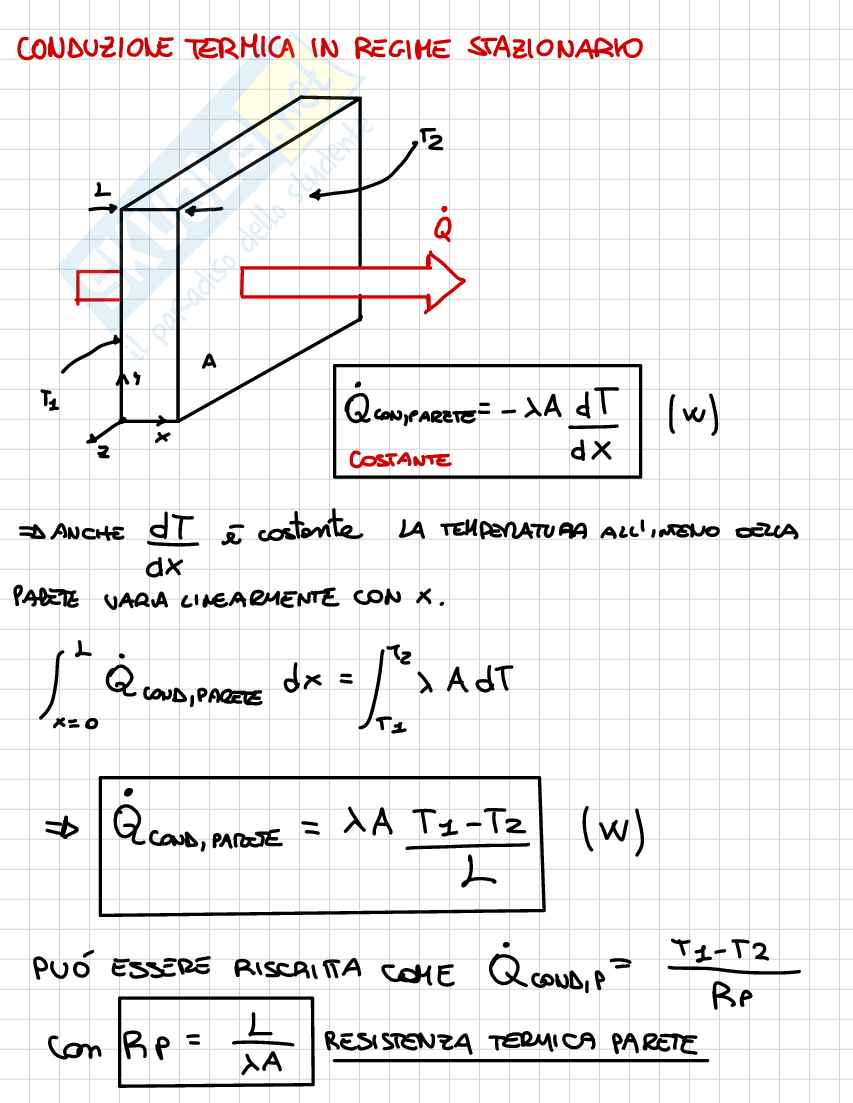 CONDUZIONE TERMICA IN REGIME STAZIONARIO
SKUOLA.net
il paradiso dello studente
T2
L
Q̇
A
T1
y
x
z
Q̇ CON,PARETE = - λA dT/dx (W)
COSTANTE
⇒ ANCHE dT/dx è costante LA TEMPERATURA ALL'INTENO DELLA
PARETE VARIA LINEARMENTE CON X.
∫_{x=0}^{L} Q̇ COND,PARETE dx = ∫_{T1}^{T2} λ A dT
⇒ Q̇ COND,PARETE = λA (T1-T2)/L (W)
PUÓ ESSERE RISCRITTA COME Q̇ COND,P = (T1-T2)/RP
con RP = L/λA RESISTENZA TERMICA PARETE